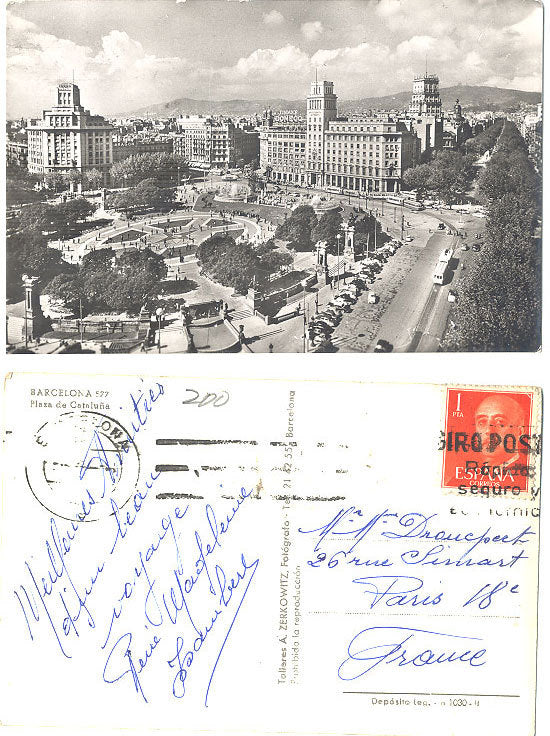 BARCELONA 577
Plaza de Cataluña
200
Meilleures Amitiés
d'un beau
voyage
René Madeleine
Isambert
Talleres A. ZERKOWITZ, Fotógrafo - Tel. 21 62 55 - Barcelona
Prohibida la reproducción
1
PTA
ESPAÑA
CORREOS
GIRO POST
Rápido
seguro y
26 rue Simart
Paris 18e
France
Depósito Leg. - B 1030-II